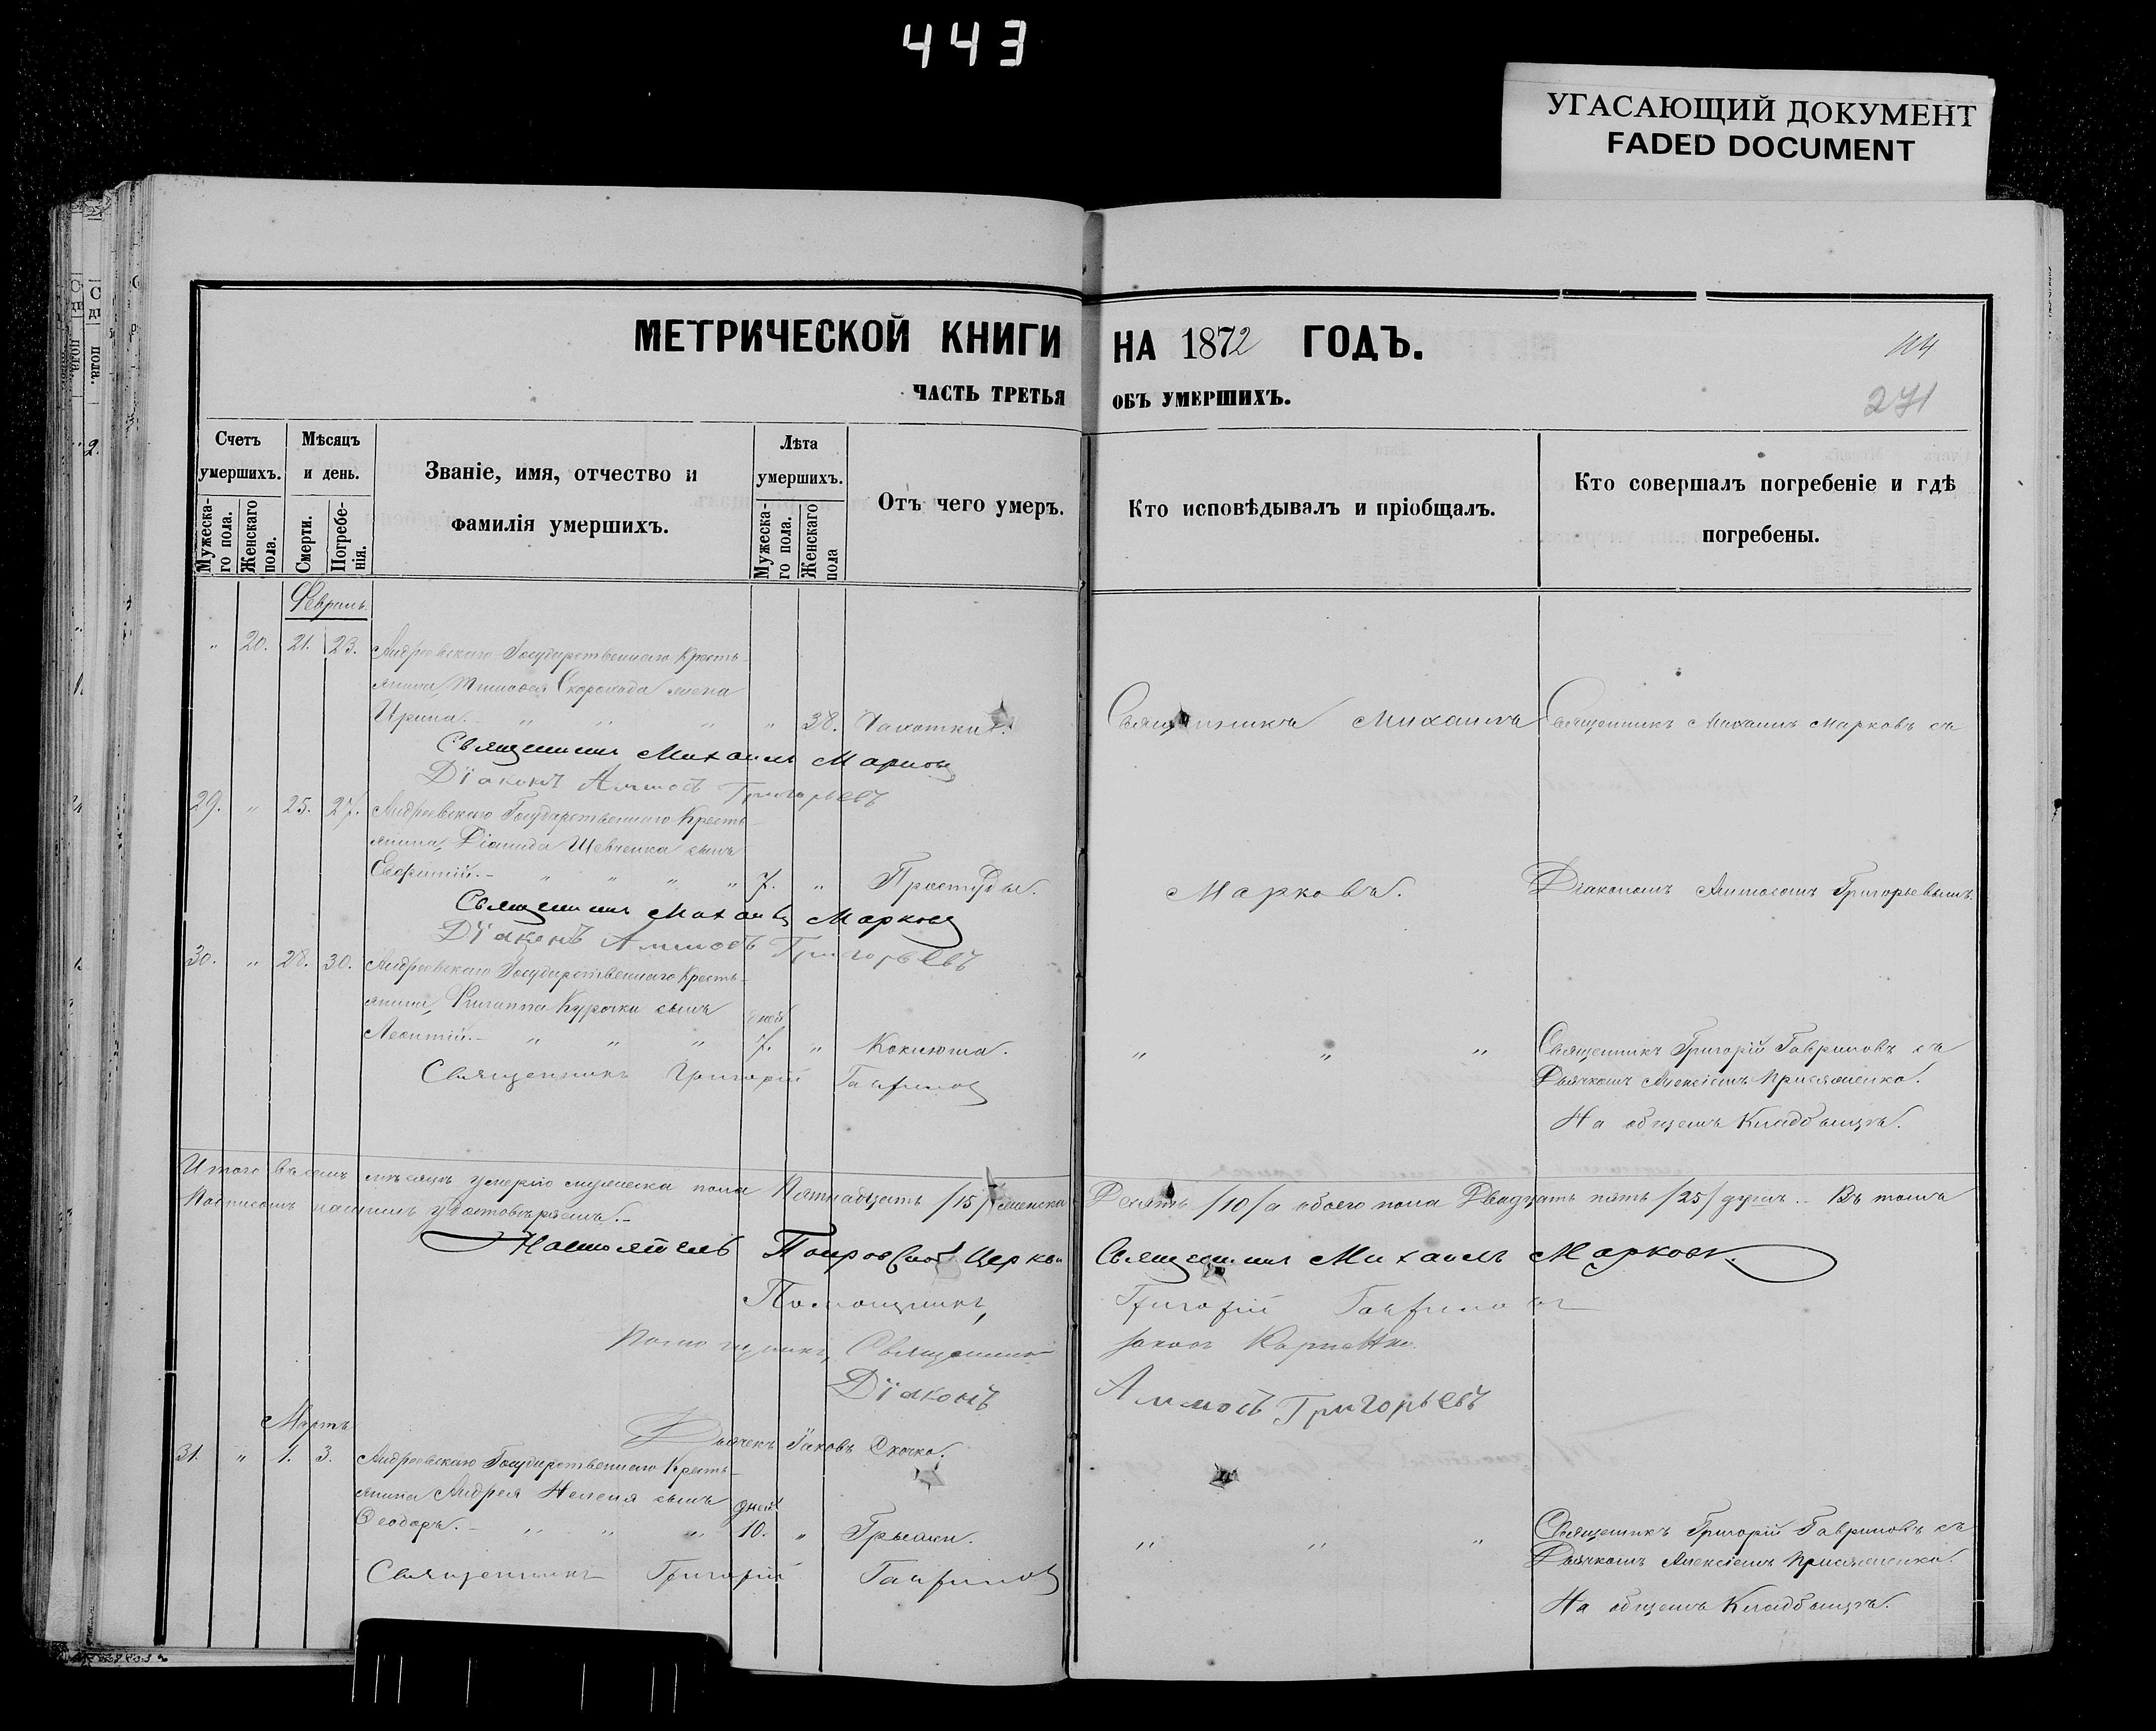 443
УГАСАЮЩИЙ ДОКУМЕНТ
FADED DOCUMENT
МЕТРИЧЕСКОЙ КНИГИ НА 1872 ГОДЪ.
ЧАСТЬ ТРЕТЬЯ ОБЪ УМЕРШИХЪ.
271
Счетъ умершихъ.
Мужеска-го пола.
Женскаго пола.
Мѣсяцъ и день.
Смерти.
Погребе-нія.
Званіе, имя, отчество и фамилія умершихъ.
Лѣта умершихъ.
Мужеска-го пола.
Женскаго пола
Отъ чего умеръ.
Кто исповѣдывалъ и пріобщалъ.
Кто совершалъ погребеніе и гдѣ погребены.
Февраль.
" 20. 21. 23. Андреевскаго Государственнаго Кресть-
янина, Тимофея Скорохода жена
Ирина. - " " " " 38. Чахотки. Священникъ Михаилъ Священникъ Михаилъ Марковъ съ
Священникъ Михаилъ Марковъ
Діаконъ Аммосъ Григорьевъ
29. " 25. 27. Андреевскаго Государственнаго Кресть-
янина, Діомида Шевченка сынъ
Евфимій. - " " " " 7. " Простуды. Марковъ. Діакономъ Аммосомъ Григорьевымъ.
Священникъ Михаилъ Марковъ
Діаконъ Аммосъ Григорьевъ
30. " 28. 30. Андреевскаго Государственнаго Кресть-
янина, Филиппа Курочки сынъ дней
Леонтій. - " " " 7. " Коклюша. " " " Священникъ Григорій Гавриловъ съ
Дьячкомъ Алексіемъ Присяженко.
Священникъ Григорій Гавриловъ
На общемъ Кладбищѣ.
Итого въ семъ мѣсяцѣ умерло мужеска пола Пятнадцать /15/ женска Десять /10/ а обоего пола Двадцать пять /25/ душъ. - Въ томъ
Подписомъ нашимъ удостовѣряемъ. -
Настоятель Покровской Церкви Священникъ Михаилъ Марковъ.
Помощникъ, Григорій Гавриловъ
Помощникъ, Священникъ
Діаконъ Аммосъ Григорьевъ
Дьячекъ Іаковъ
Мартъ
31. " 1. 3. Андреевскаго Государственнаго Кресть-
янина Андрея сынъ дней
Ѳеодоръ. - " " " 10. " Грыжи. " " " Священникъ Григорій Гавриловъ съ
Дьячкомъ Алексіемъ Присяженко.
Священникъ Григорій Гавриловъ
На общемъ Кладбищѣ.